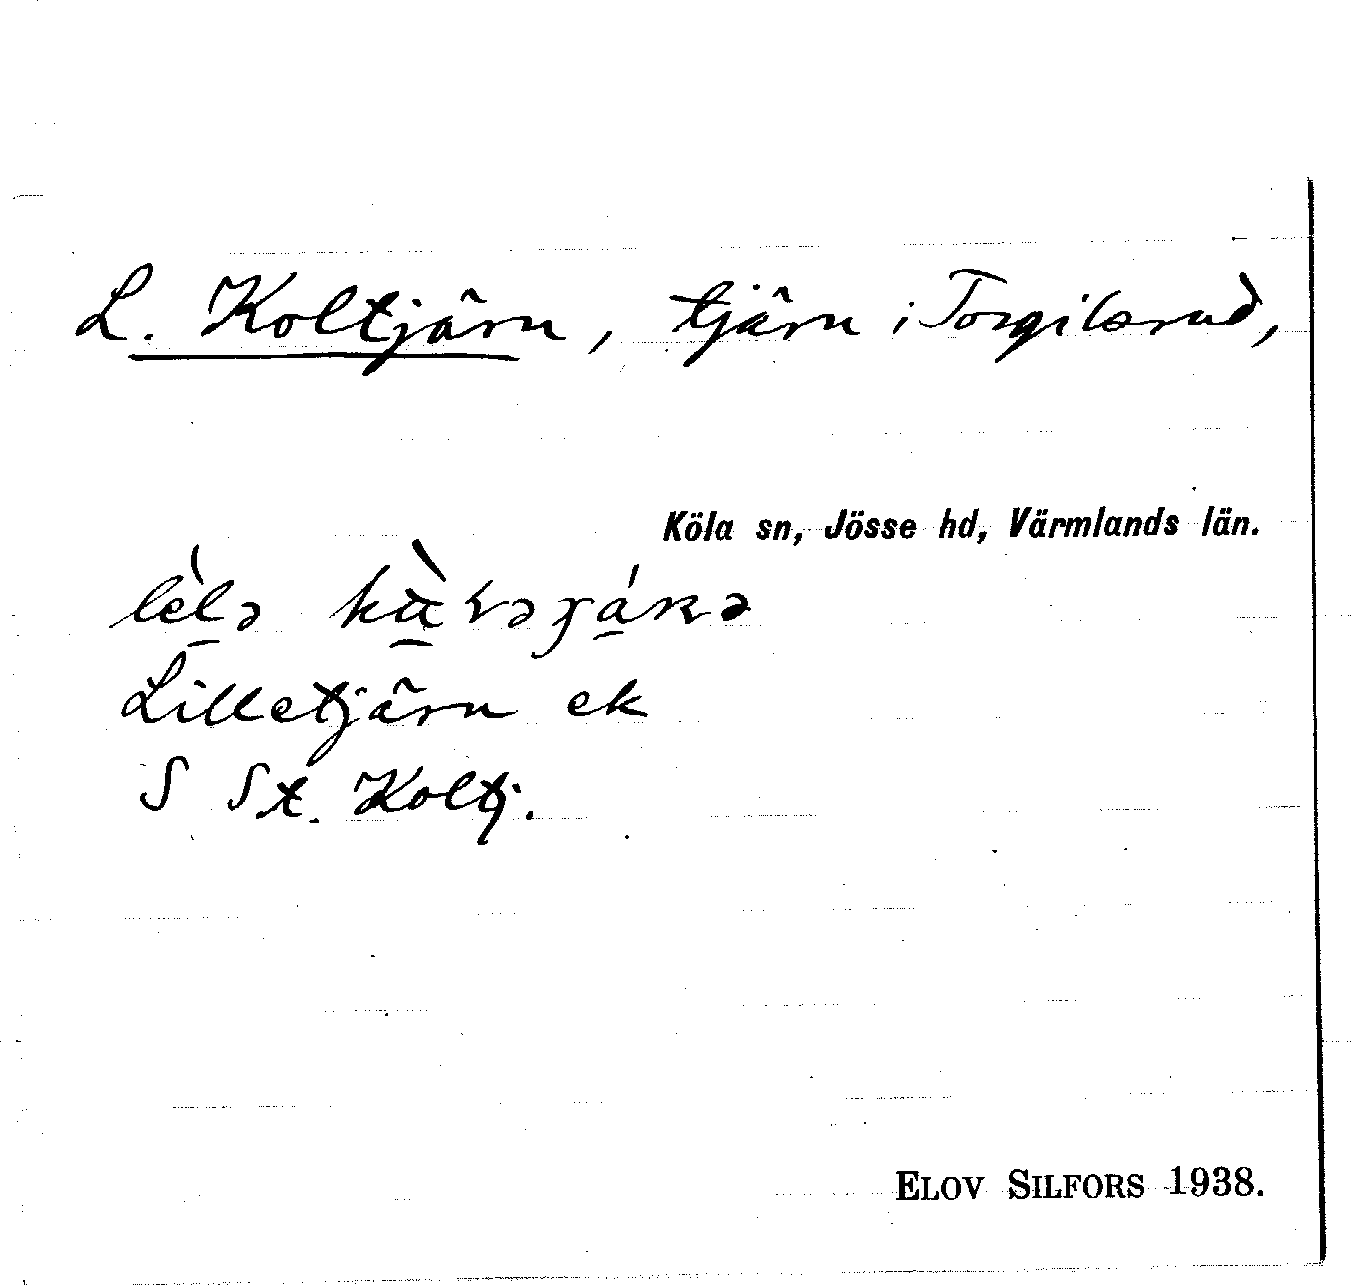 L. Koltjärn, tjärn i Torgilsrud,
Köla sn, Jösse hd, Värmlands län.
Lilletjärn ek
S St. Koltj.
ELOV SILFORS 1938.